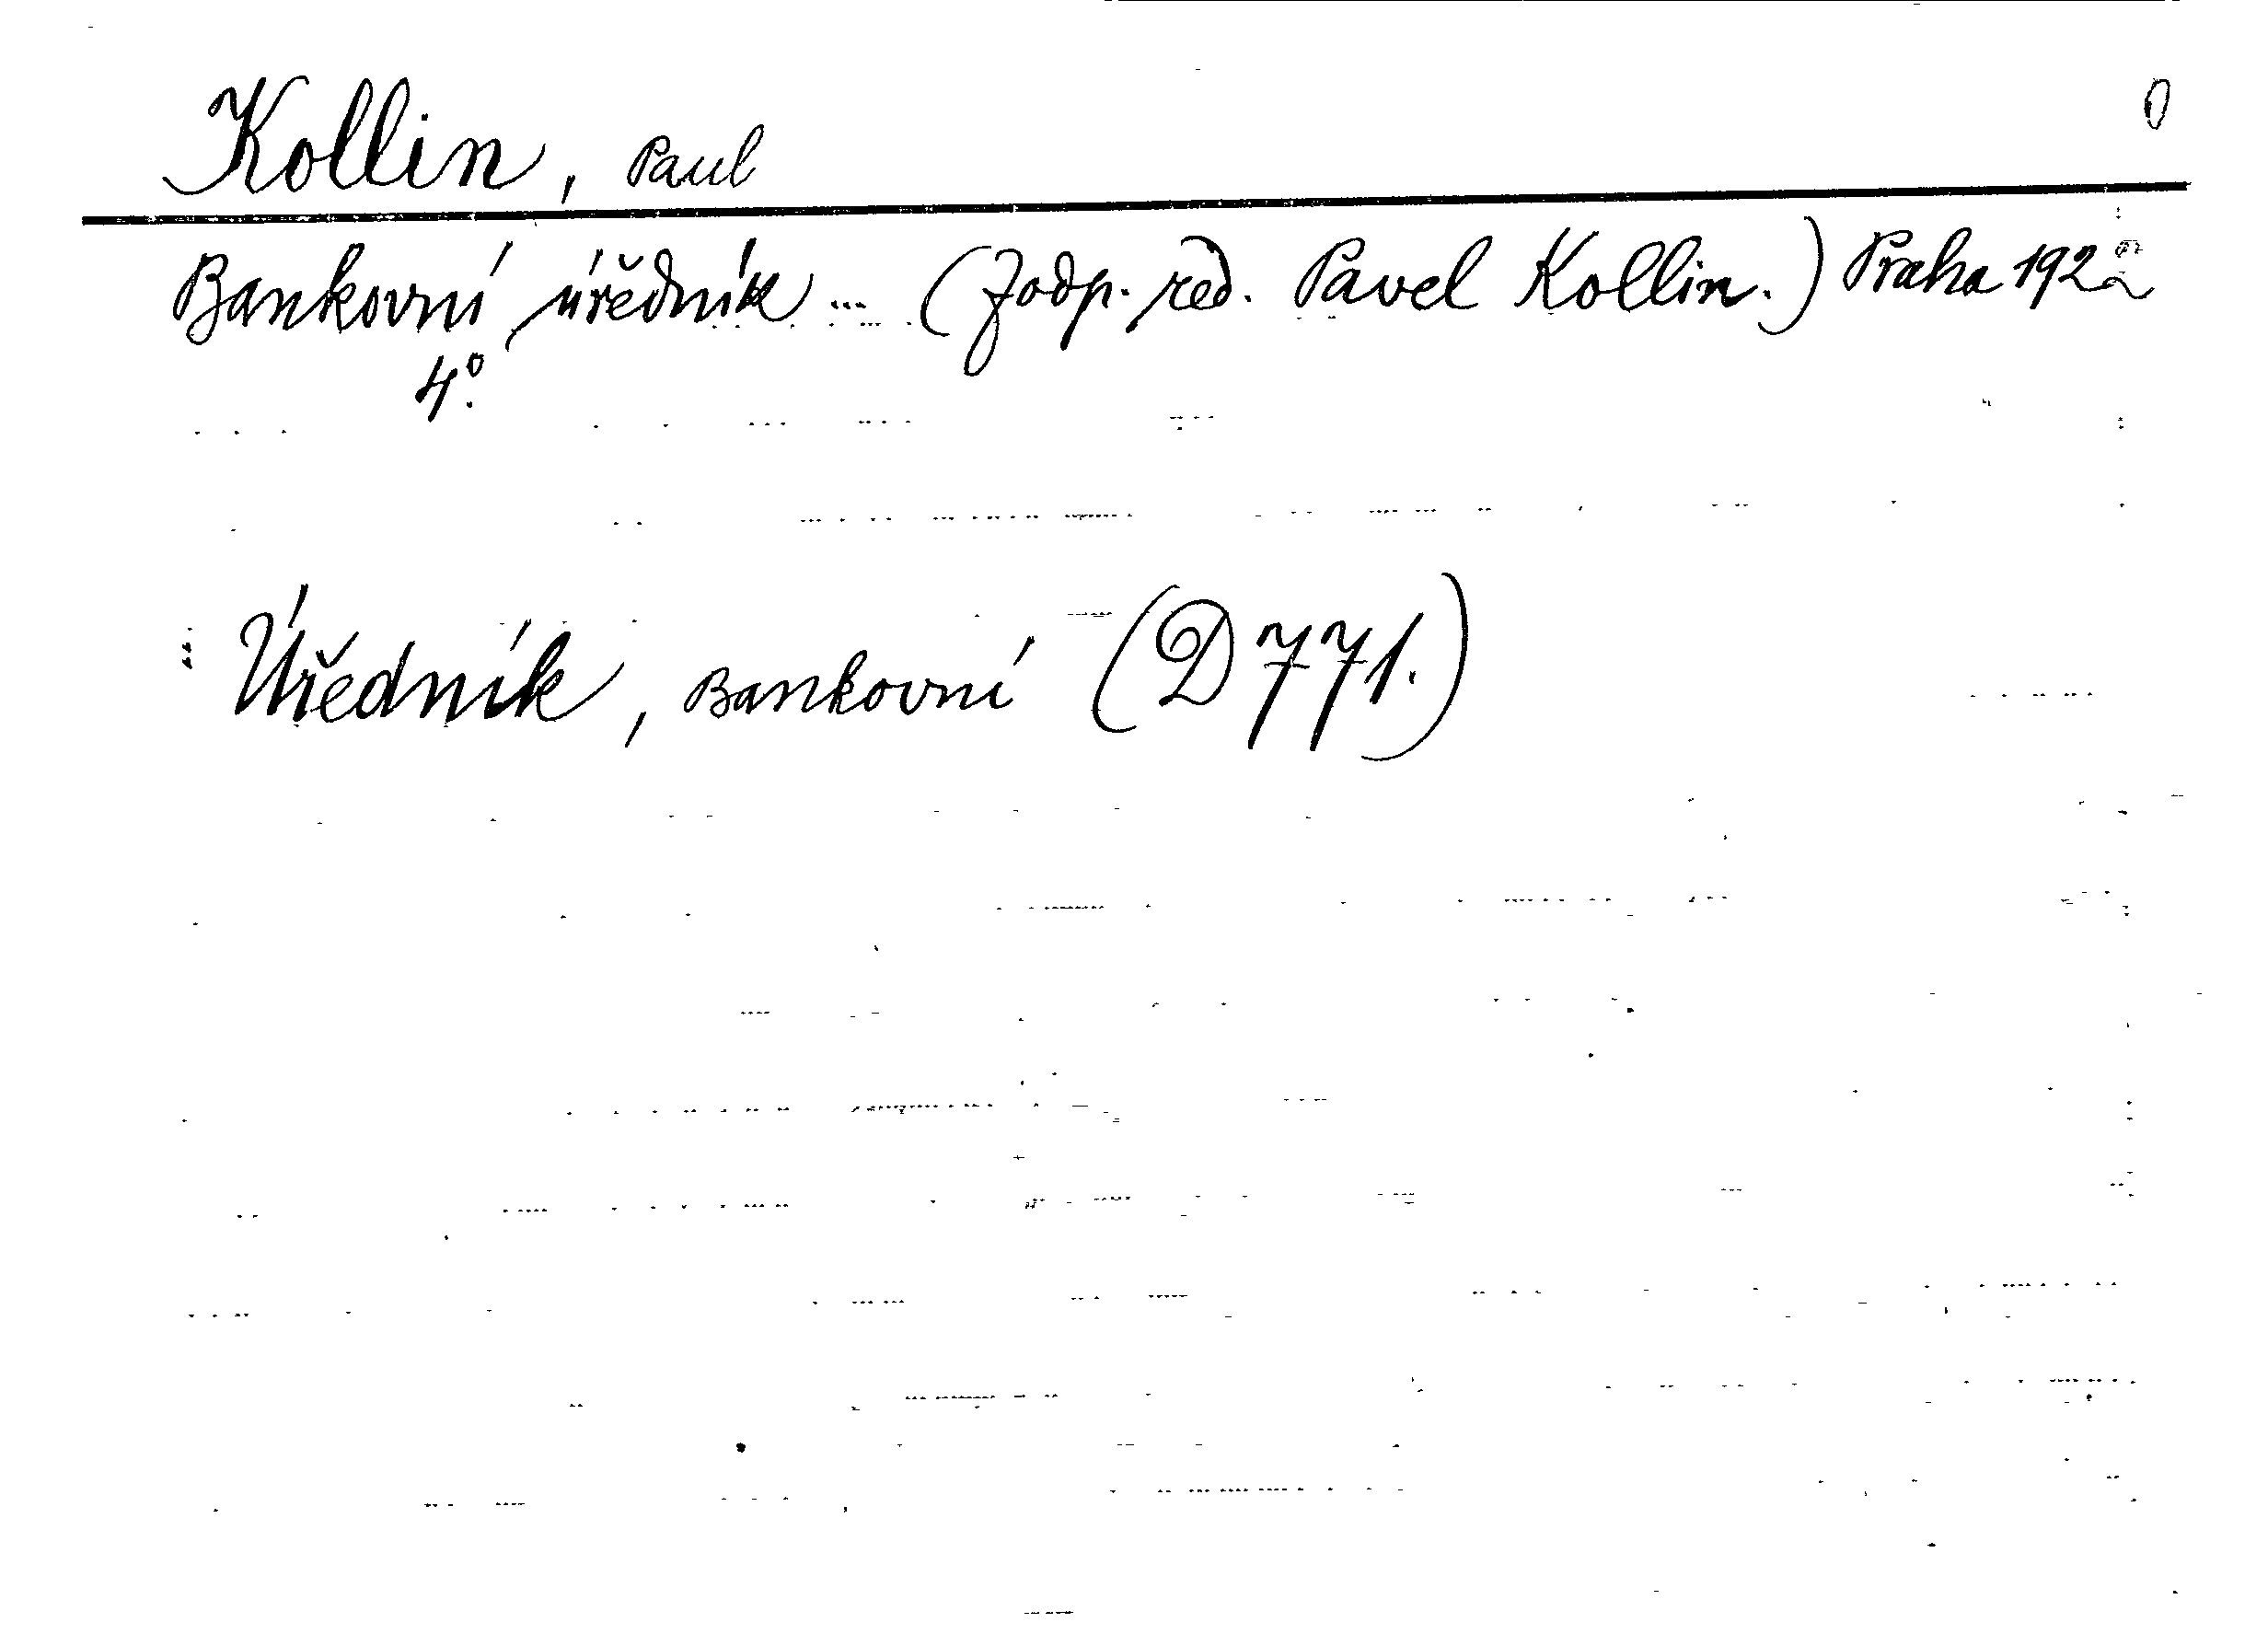 Kollin, Paul 0
Bankovní úředník ... (Zodp. red. Pavel Kollin.) Praha 192
4°.
Úředník, Bankovní (D 771.)